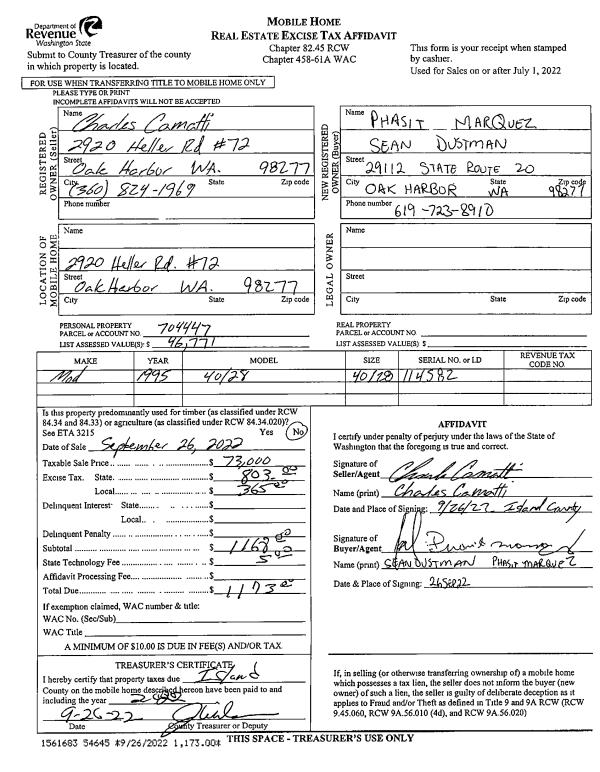 Department of
Revenue
Washington State
Submit to County Treasurer of the county
in which property is located.
MOBILE HOME
REAL ESTATE EXCISE TAX AFFIDAVIT
Chapter 82.45 RCW
Chapter 458-61A WAC
This form is your receipt when stamped
by cashier.
Used for Sales on or after July 1, 2022
FOR USE WHEN TRANSFERRING TITLE TO MOBILE HOME ONLY
PLEASE TYPE OR PRINT
INCOMPLETE AFFIDAVITS WILL NOT BE ACCEPTED
REGISTERED
OWNER (Seller)
Name
Charles Camatti
2920 Heller Rd #72
Street
Oak Harbor WA. 98277
City State Zip code
(360) 824-1969
Phone number
NEW REGISTERED
OWNER (Buyer)
Name
PHASIT MARQUEZ
SEAN DUSTMAN
Street
29112 STATE ROUTE 20
City State Zip code
OAK HARBOR WA 98277
Phone number
619-723-8910
LOCATION OF
MOBILE HOME
Name
2920 Heller Rd. #72
Street
Oak Harbor WA. 98277
City State Zip code
LEGAL OWNER
Name
Street
City State Zip code
PERSONAL PROPERTY
PARCEL or ACCOUNT NO. 704447
LIST ASSESSED VALUE(S) $ 46,771
REAL PROPERTY
PARCEL or ACCOUNT NO.
LIST ASSESSED VALUE(S) $
MAKE YEAR MODEL SIZE SERIAL NO. or I.D REVENUE TAX
CODE NO.
Mod 1995 40/28 40/28 114582
Is this property predominantly used for timber (as classified under RCW
84.34 and 84.33) or agriculture (as classified under RCW 84.34.020)?
See ETA 3215 Yes No
Date of Sale September 26, 2022
Taxable Sale Price $ 73,000
Excise Tax. State. $ 803.00
Local $ 365.00
Delinquent Interest: State $
Local $
Delinquent Penalty $
Subtotal $ 1168.00
State Technology Fee $ 5.00
Affidavit Processing Fee $
Total Due $ 1173.00
If exemption claimed, WAC number & title:
WAC No. (Sec/Sub)
WAC Title
A MINIMUM OF $10.00 IS DUE IN FEE(S) AND/OR TAX
AFFIDAVIT
I certify under penalty of perjury under the laws of the State of
Washington that the foregoing is true and correct.
Signature of
Seller/Agent Charles Camatti
Name (print) Charles Camatti
Date and Place of Signing: 9/26/22 Island County
Signature of
Buyer/Agent
Name (print) SEAN DUSTMAN PHASIT MARQUEZ
Date & Place of Signing: 26SEP22
TREASURER'S CERTIFICATE
I hereby certify that property taxes due Island
County on the mobile home described hereon have been paid to and
including the year 2022
9-26-22
Date County Treasurer or Deputy
If, in selling (or otherwise transferring ownership of) a mobile home
which possesses a tax lien, the seller does not inform the buyer (new
owner) of such a lien, the seller is guilty of deliberate deception as it
applies to Fraud and/or Theft as defined in Title 9 and 9A RCW (RCW
9.45.060, RCW 9A.56.010 (4d), and RCW 9A.56.020)
1561683 54645 *9/26/2022 1,173.00* THIS SPACE - TREASURER'S USE ONLY